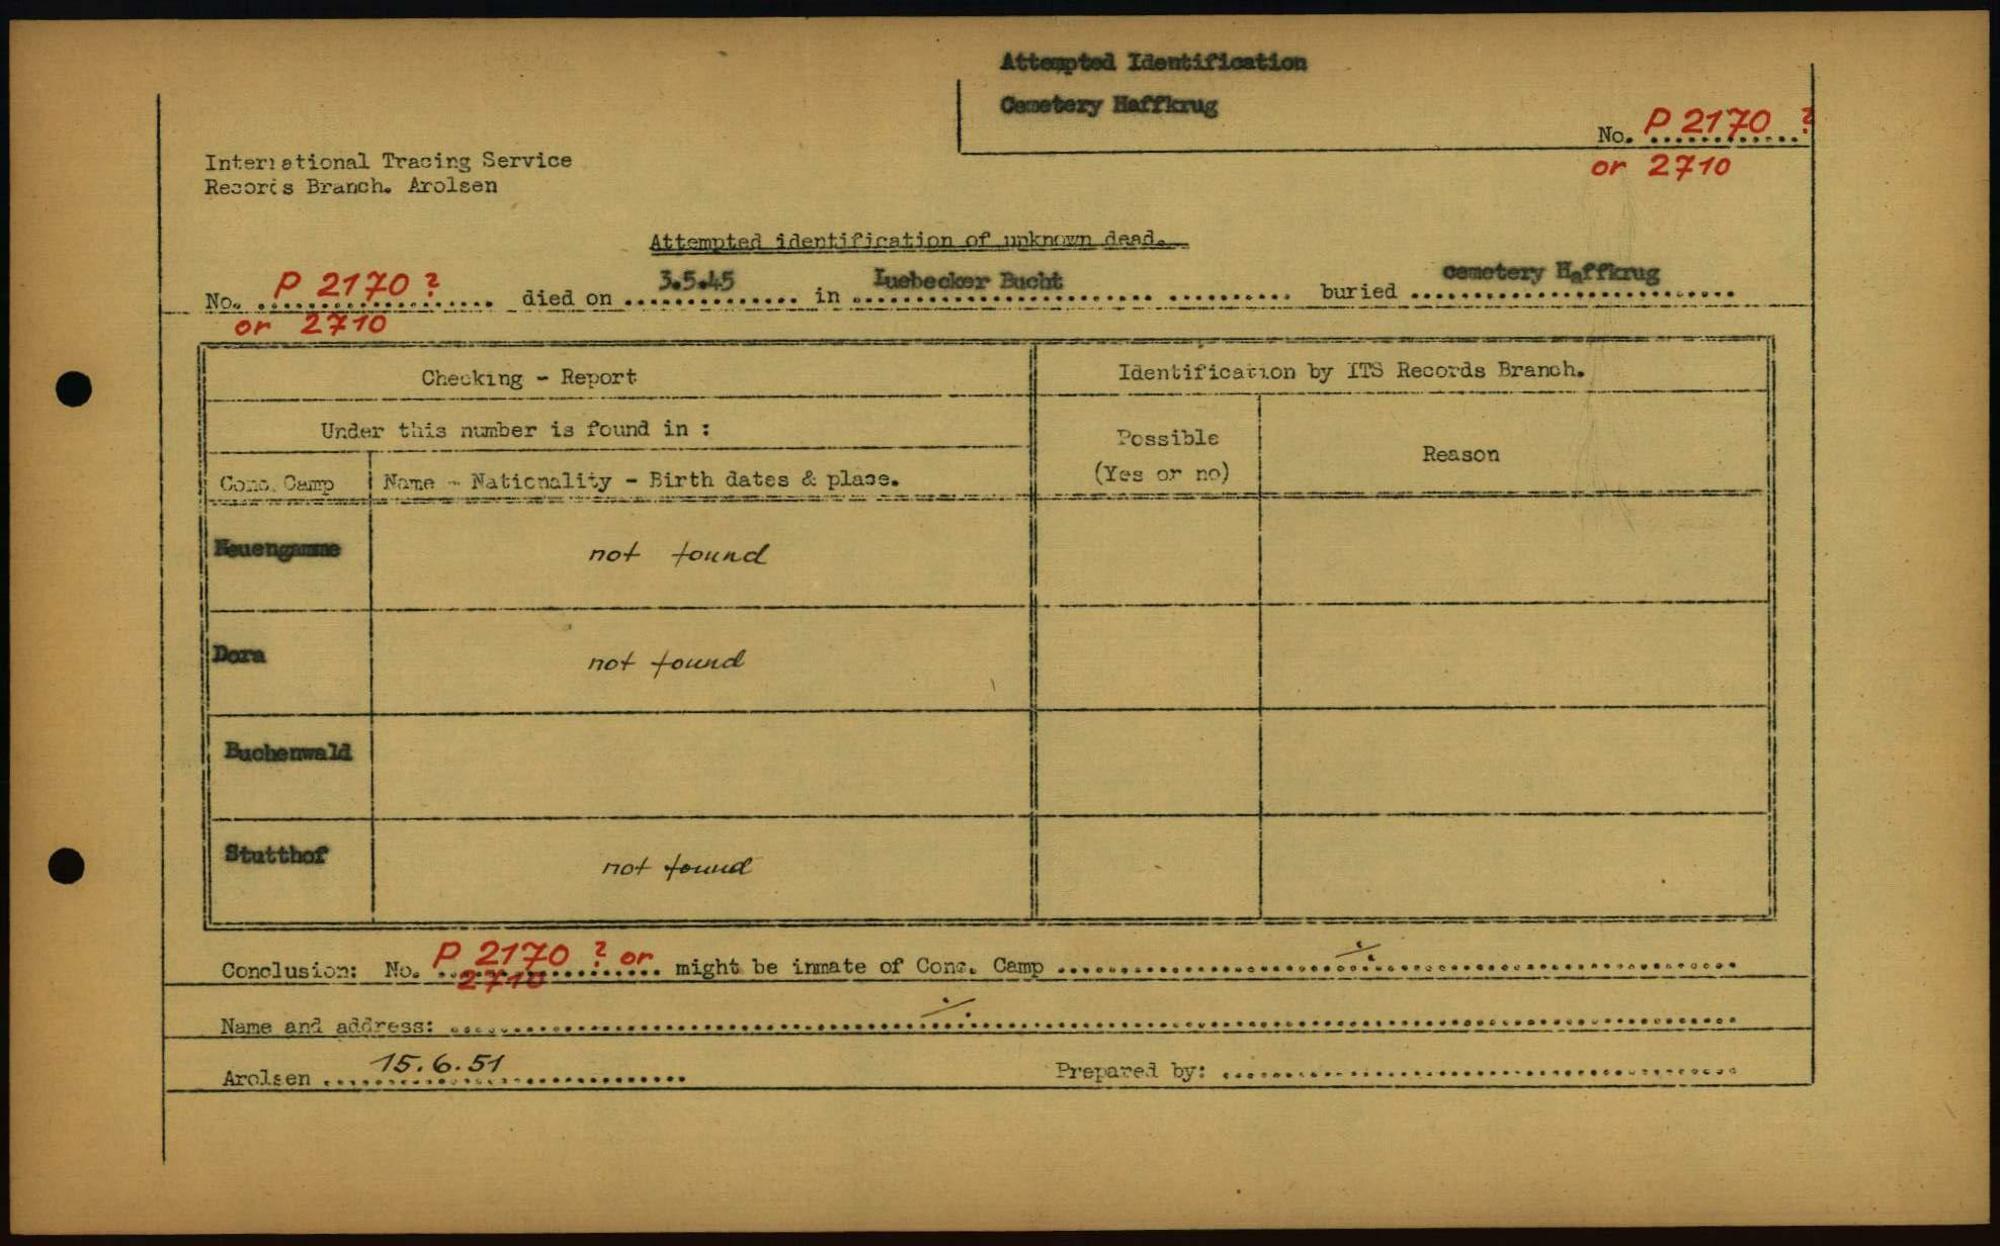 Attempted Identification
Cemetery Haffkrug
No. P 2170 ?
or 2710
International Tracing Service
Records Branch. Arolsen
Attempted identification of unknown dead.
No. P 2170 ? died on 3.5.45 in Luebecker Bucht buried cemetery Haffkrug
or 2710
Checking - Report
Identification by ITS Records Branch.
Under this number is found in :
Possible
(Yes or no)
Reason
Conc. Camp
Name - Nationality - Birth dates & place.
Neuengamme
not found
Dora
not found
Buchenwald
Stutthof
not found
Conclusion: No. P 2170 ? or might be inmate of Conc. Camp ./.
2710
Name and address: ./.
Arolsen 15.6.51
Prepared by: